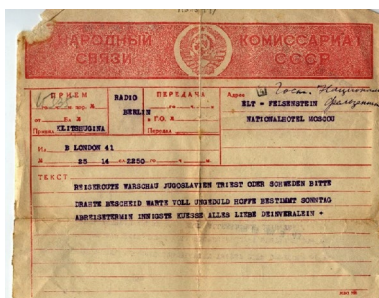 НАРОДНЫЙ КОМИССАРИАТ
СВЯЗИ СССР
ПРИЕМ RADIO ПЕРЕДАЧА Адрес
BERLIN ELT = FELSENSTEIN
NATIONALHOTEL MOSCOU
Принял KLITSHUGINA Передал
Из B LONDON 41
№ 25 14 2250
ТЕКСТ
REISEROUTE WARSCHAU JUGOSLAVIEN TRIEST ODER SCHWEDEN BITTE
DRAHTE BESCHEID WARTE VOLL UNGEDULD HOFFE BESTIMMT SONNTAG
ABREISETERMIN INNIGSTE KUESSE ALLES LIEBE DEINVERALEIN +